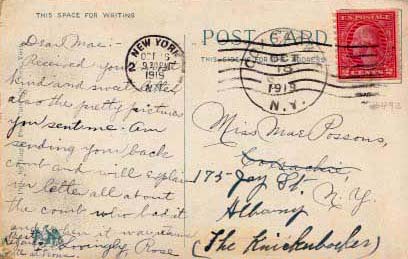 THIS SPACE FOR WRITING
Dear Mae:-
Received your
kind and sweet letter
also the pretty picture
you sent me. Am
sending your back
comb and will explain
in letter all about
the comb who had it
and when it
Lovingly, Rose
NEW YORK
OCT
1919
N.Y.
POST CARD
THIS SIDE FOR ADDRESS
OCT
1919
N.Y.
U.S. POSTAGE
2 CENTS 2
Miss Mae Possons,
Coxsackie,
175 Jay St. N.Y.
Albany
(The Knickerbocker)